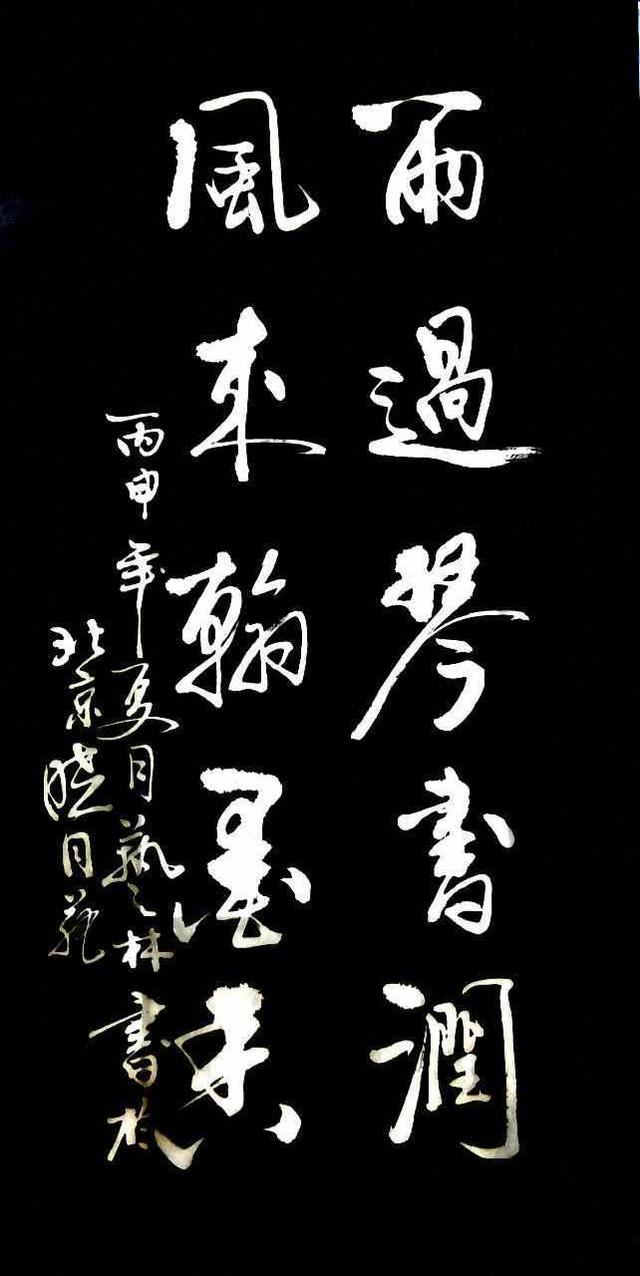 雨過琴書潤
風来翰墨香
丙申年夏月藝林書於
北京曉月苑